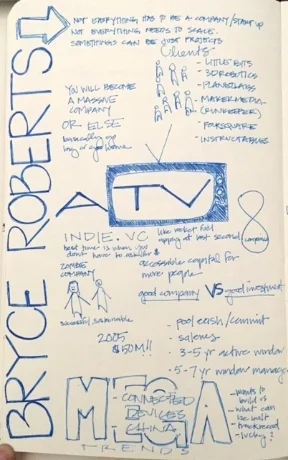 BRYCE ROBERTS
NOT EVERYTHING HAS TO BE A COMPANY/STARTUP
NOT EVERYTHING NEEDS TO SCALE.
SOMETHINGS CAN BE JUST PROJECTS
Clients
- LITTLE BITS
- 3D ROBOTICS
- PLANET LABS
- MAKER MEDIA
(RUNKEEPER)
- FOURSQUARE
- INSTRUCTABLES
YOU WILL BECOME
A MASSIVE
COMPANY
OR ELSE
A TV
8
companies
INDIE.VC
like rocket fuel
best time is when you
don't have to
accessible capital for
more people
ZOMBIE
COMPANY
successful, sustainable
good company VS good investment
2005
$50M!!
- pool cash/commit
- salaries
- 3-5 yr active window
- 5-7 yr window manage
MEGA
- CONNECTED
DEVICES
- CHINA
TRENDS
- wants to
build is
- what can
be built
- lucky?